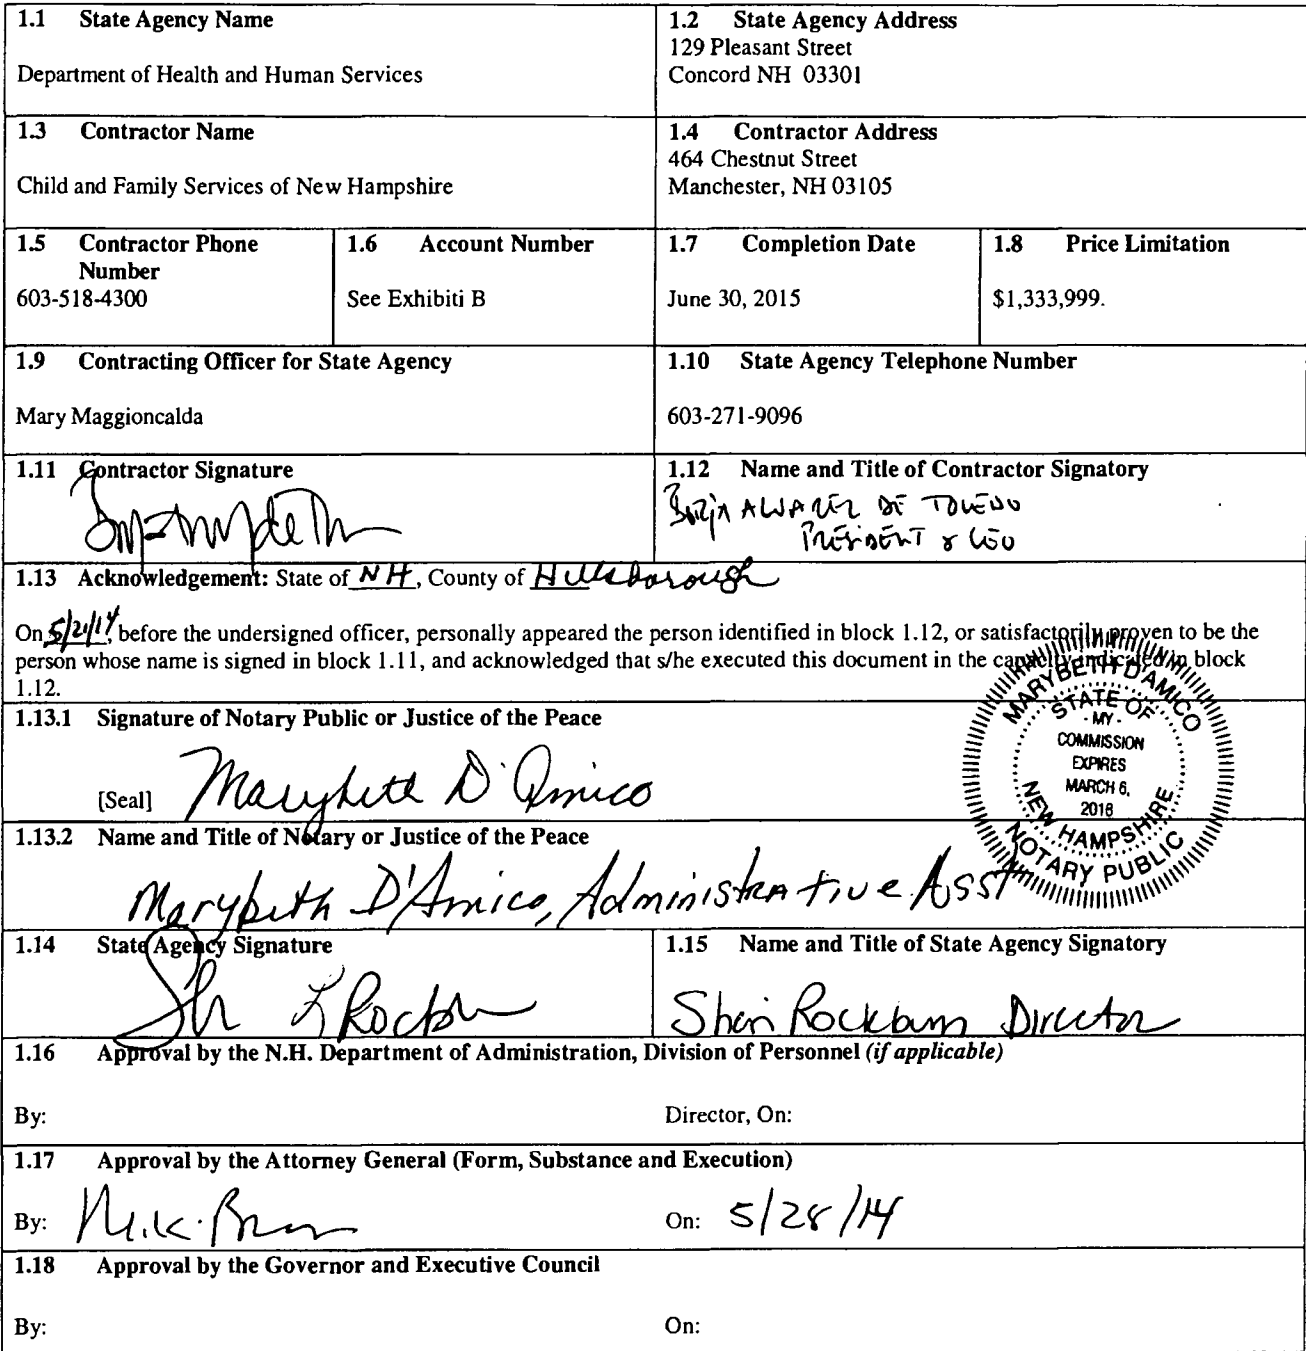 1.1 State Agency Name
Department of Health and Human Services
1.2 State Agency Address
129 Pleasant Street
Concord NH 03301
1.3 Contractor Name
Child and Family Services of New Hampshire
1.4 Contractor Address
464 Chestnut Street
Manchester, NH 03105
1.5 Contractor Phone
Number
603-518-4300
1.6 Account Number
See Exhibiti B
1.7 Completion Date
June 30, 2015
1.8 Price Limitation
$1,333,999.
1.9 Contracting Officer for State Agency
Mary Maggioncalda
1.10 State Agency Telephone Number
603-271-9096
1.11 Contractor Signature
1.12 Name and Title of Contractor Signatory
Borja ALVAREZ DE TOLEDO
PRESIDENT & CEO
1.13 Acknowledgement: State of NH, County of Hillsborough
On 5/21/14, before the undersigned officer, personally appeared the person identified in block 1.12, or satisfactorily proven to be the
person whose name is signed in block 1.11, and acknowledged that s/he executed this document in the capacity indicated in block
1.12.
1.13.1 Signature of Notary Public or Justice of the Peace
[Seal] Marybeth D'Amico
MARYBETH D'AMICO
STATE OF
- MY -
COMMISSION
EXPIRES
MARCH 6,
2016
NEW HAMPSHIRE
NOTARY PUBLIC
1.13.2 Name and Title of Notary or Justice of the Peace
Marybeth D'Amico, Administrative Asst
1.14 State Agency Signature
1.15 Name and Title of State Agency Signatory
Sheri Rockburn Director
1.16 Approval by the N.H. Department of Administration, Division of Personnel (if applicable)
By:
Director, On:
1.17 Approval by the Attorney General (Form, Substance and Execution)
By:
On: 5/28/14
1.18 Approval by the Governor and Executive Council
By:
On: